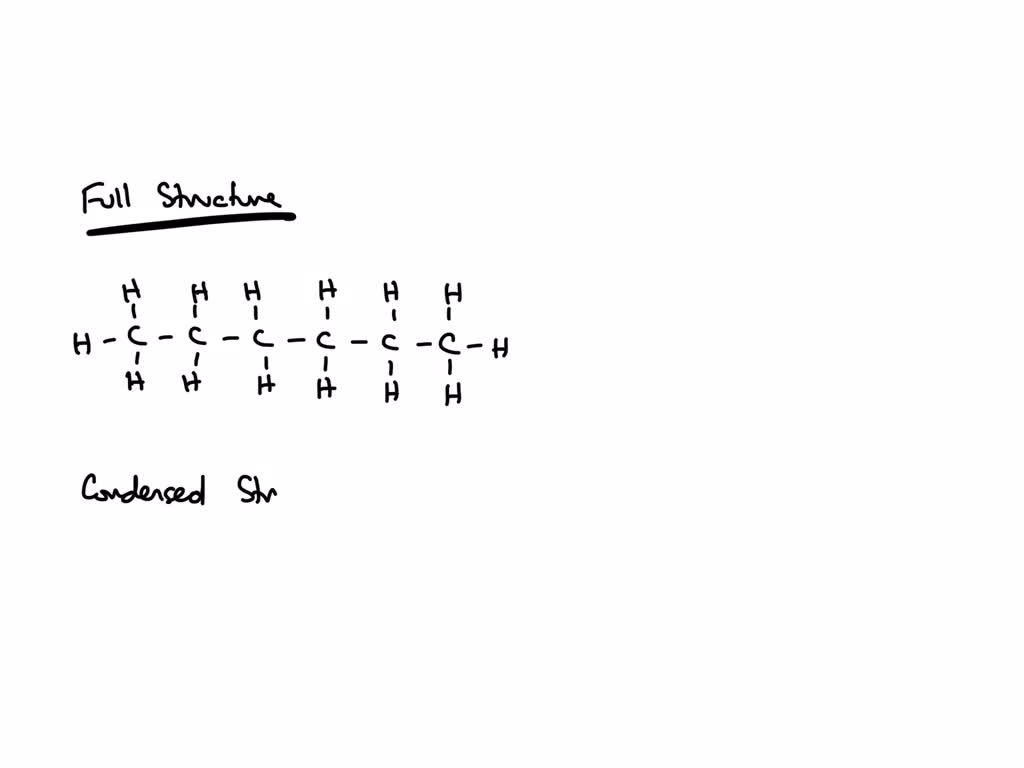 Full Structure
H H H H H H
H - C - C - C - C - C - C - H
H H H H H H
Condensed Str